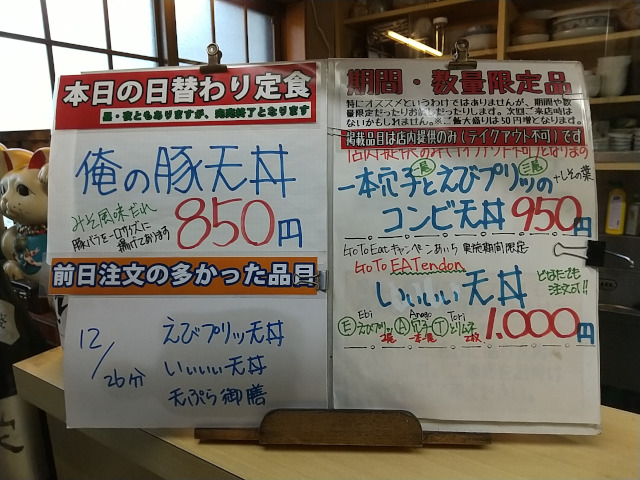 本日の日替わり定食
俺の豚天丼
みそ風味だれ
850円
豚バラを一口サイズに
揚げております
前日注文の多かった品目
12/26分
えびプリッ天丼
いいいい天丼
天ぷら御膳
期間・数量限定品
特にオススメというわけではありませんが、期間や数
量限定だったりお試しだったりします。次回ご来店時は
ないかもしれません。※ご飯大盛りは50円増となります。
掲載品目は店内提供のみ(テイクアウト不可)です
店内提供のみ(テイクアウト不可)となります
一尾 二尾
一本穴子とえびプリッの
+しその葉
コンビ天丼 950円
GoToEatキャンペーンあいち 実施期間限定
GoTo EATendon
いいいい天丼
どなたでも
注文可!!
Ebi Anago Tori
Ⓔえびプリッ Ⓐ穴子 Ⓣとりムネ
2尾 一本 2枚
1.000円